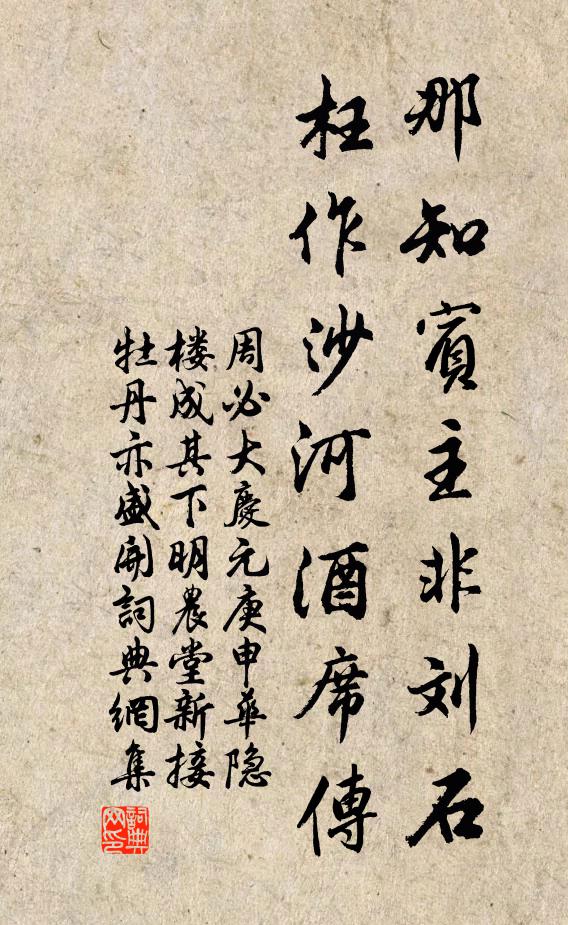 那知賓主非刘石
枉作沙河酒席傳
周必大慶元庚申華隐
楼成其下明農堂新接
牡丹亦盛開詞典網集
詞典网印